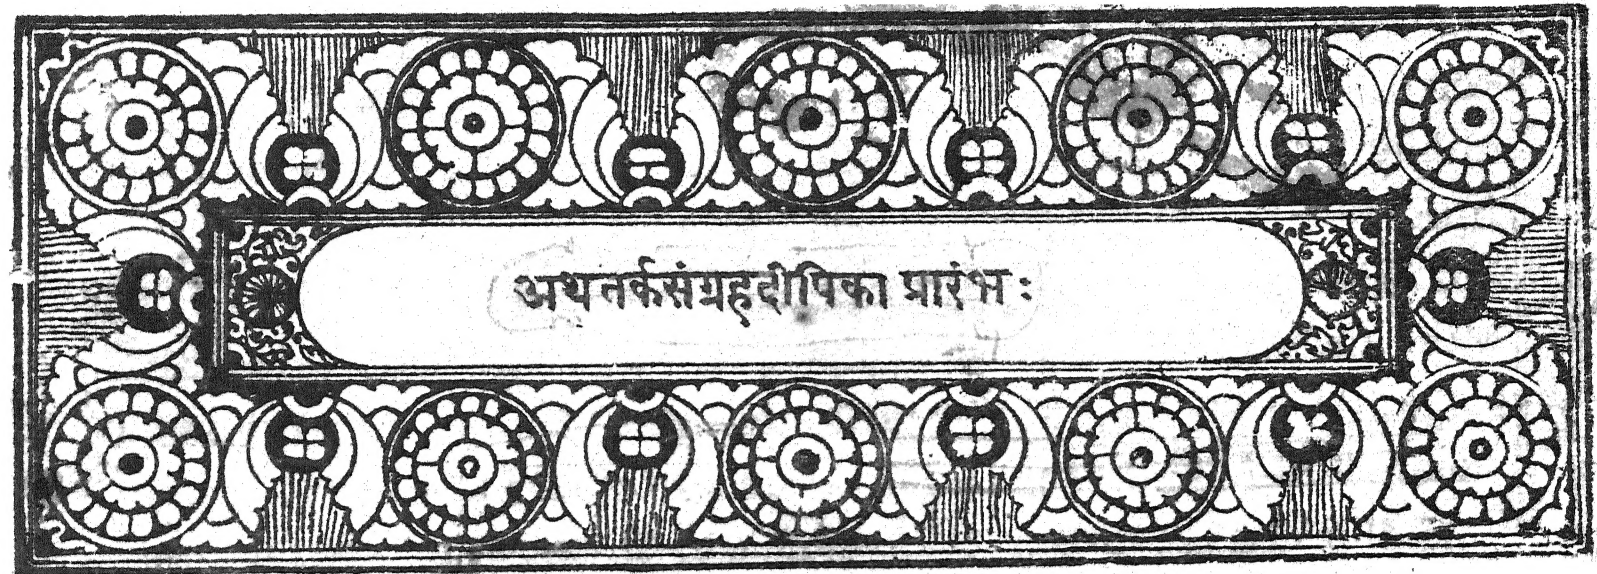 अथतर्कसंग्रहदीपिका प्रारंभः